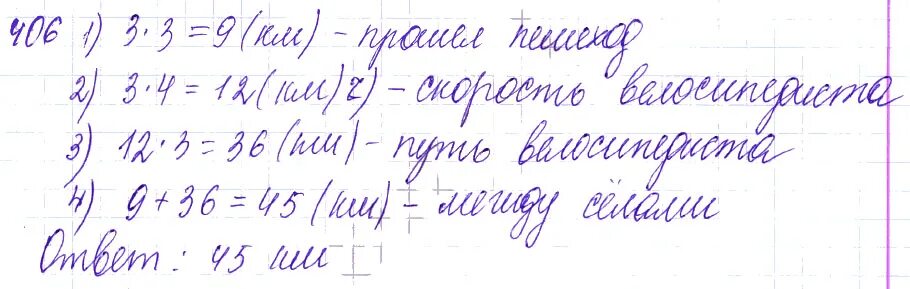 406 1) 3·3=9(км) - прошел пешеход
2) 3·4=12(км/ч) - скорость велосипедиста
3) 12·3=36(км) - путь велосипедиста
4) 9+36=45(км) - между сёлами
Ответ: 45 км